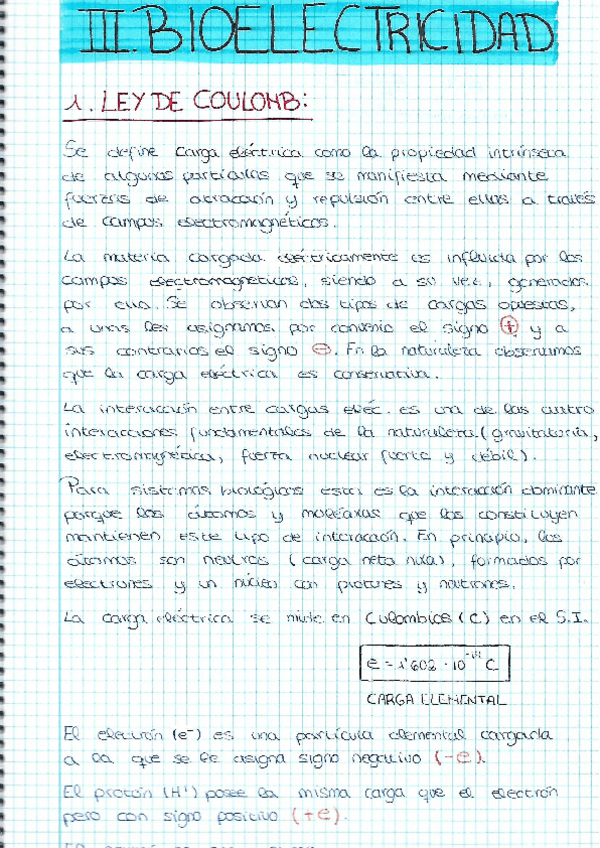 III. BIOELECTRICIDAD
1. LEY DE COULOMB:
Se define carga eléctrica como la propiedad intrínseca
de algunas partículas que se manifiesta mediante
fuerzas de atracción y repulsión entre ellas a través
de campos electromagnéticos.
La materia cargada eléctricamente es influida por los
campos electromagnéticos, siendo a su vez, generados
por ella. Se observan dos tipos de cargas opuestas,
a unas les asignamos por convenio el signo ⊕ y a
sus contrarios el signo ⊖. En la naturaleza observamos
que la carga eléctrica es conservativa.
La interacción entre cargas eléc. es una de las cuatro
interacciones fundamentales de la naturaleza (gravitatoria,
electromagnética, fuerza nuclear fuerte y débil).
Para sistemas biológicos esta es la interacción dominante
porque los átomos y moléculas que los constituyen
mantienen este tipo de interacción. En principio, los
átomos son neutros (carga neta nula), formados por
electrones y un núcleo con protones y neutrones.
La carga eléctrica se mide en Culombios (C) en el S.I.
e = 1'602 · 10⁻¹⁹ C
CARGA ELEMENTAL
El electrón (e⁻) es una partícula elemental cargada
a la que se le asigna signo negativo (-e).
El protón (H⁺) posee la misma carga que el electrón
pero con signo positivo (+e).